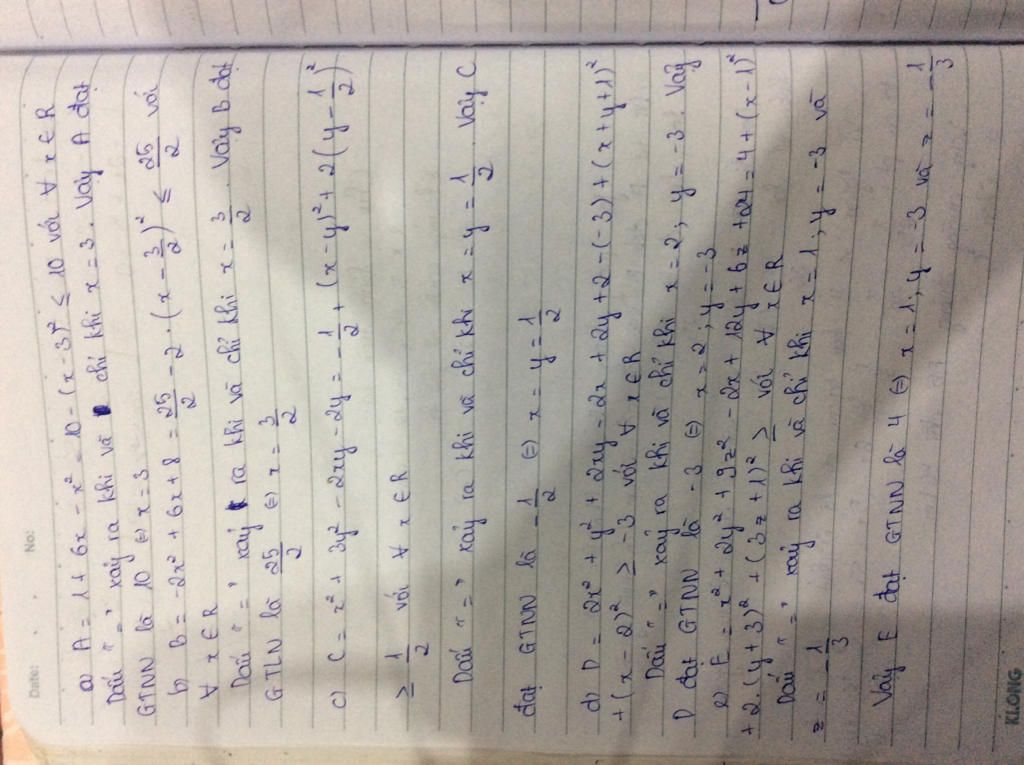 Date: No:
a) A = 1 + 6x - x² = 10 - (x - 3)² ≤ 10 với ∀ x ∈ R
Dấu "=" xảy ra khi và chỉ khi x = 3. Vậy A đạt
GTNN là 10 ⇔ x = 3
b) B = -2x² + 6x + 8 = 25/2 - 2.(x - 3/2)² ≤ 25/2 với
∀ x ∈ R
Dấu "=" xảy ra khi và chỉ khi x = 3/2. Vậy B đạt
GTLN là 25/2 ⇔ x = 3/2
c) C = x² + 3y² - 2xy - 2y = -1/2 + (x - y)² + 2(y - 1/2)²
≥ -1/2 với ∀ x ∈ R
Dấu "=" xảy ra khi và chỉ khi x = y = 1/2. Vậy C
đạt GTNN là -1/2 ⇔ x = y = 1/2
d) D = 2x² + y² + 2xy - 2x + 2y + 2 - (-3) + (x + y + 1)²
+ (x - 2)² ≥ -3 với ∀ x ∈ R
Dấu "=" xảy ra khi và chỉ khi x = 2, y = -3. Vậy
D đạt GTNN là -3 ⇔ x = 2; y = -3
e) E = x² + 2y² + 9z² - 2x + 12y + 6z + 24 = 4 + (x - 1)²
+ 2.(y + 3)² + (3z + 1)² ≥ với ∀ x ∈ R
Dấu "=" xảy ra khi và chỉ khi x = 1, y = -3 và
z = -1/3
Vậy E đạt GTNN là 4 ⇔ x = 1, y = -3 và z = -1/3
KLONG